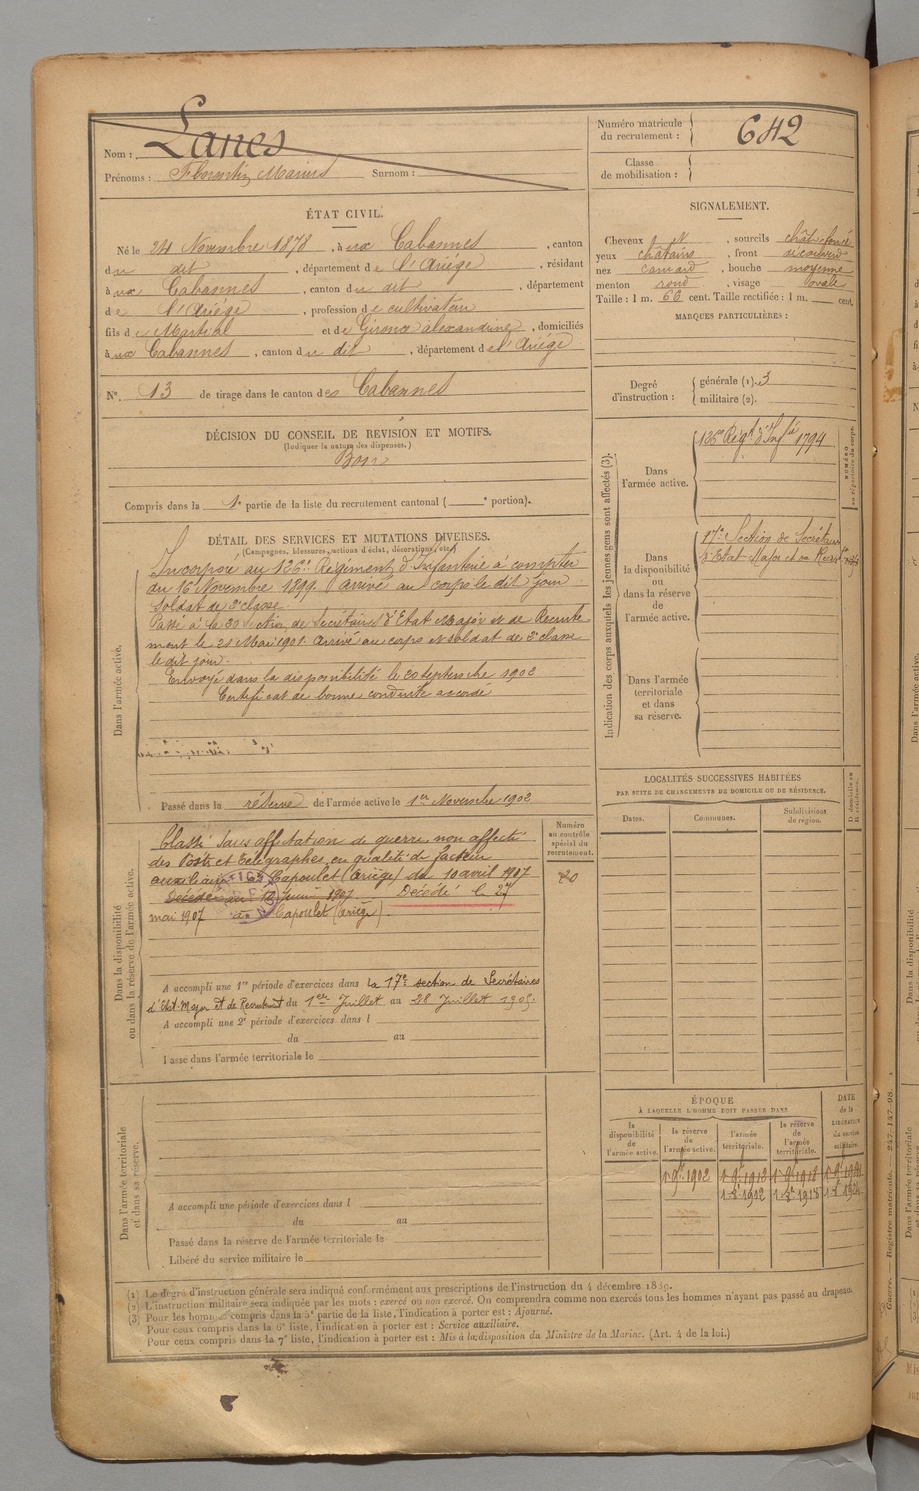 Nom : Lanes
Prénoms : Florentin Marius Surnom :
Numéro matricule du recrutement : 642
Classe de mobilisation :
ÉTAT CIVIL.
Né le 24 Novembre 1878, à ux Cabannes, canton
du dit, département de l'Ariège, résidant
à ux Cabannes, canton du dit, département
de l'Ariège, profession de cultivateur
fils de Martial et de Giroux alexandrine, domiciliés
à ux Cabannes, canton du dit, département de l'Ariège.
N° 13 de tirage dans le canton des Cabannes
DÉCISION DU CONSEIL DE REVISION ET MOTIFS.
(Indiquer la nature des dispenses.)
Bon
Compris dans la 1e partie de la liste du recrutement cantonal ( e portion).
DÉTAIL DES SERVICES ET MUTATIONS DIVERSES.
(Campagnes, blessures, actions d'éclat, décorations, etc.)
Dans l'armée active.
Incorporé au 126e Régiment d'Infanterie à compter
du 16 Novembre 1899. Arrivé au corps le dit jour
Soldat de 2e classe
Passé à la 20 Section de Secrétaires d'Etat Major et de Recrute
ment le 21 Mai 1901. Arrivé au corps et soldat de 2e classe
le dit jour.
Envoyé dans la disponibilité le 20 septembre 1902
Certificat de bonne conduite accordé
Passé dans la réserve de l'armée active le 1er Novembre 1902
Dans la disponibilité
ou dans la réserve de l'armée active.
Classé Sans affectation de guerre non affecté
des Postes et Télégraphes en qualité de facteur
auxiliaire à Capoulet (Ariège) du 10 avril 1907
Décédé le 27
mai 1907 à Capoulet (Ariège).
Numéro
au contrôle
spécial du
recrutement.
20
A accompli une 1re période d'exercices dans la 17e section de Secrétaires
d'Etat-Major et de Recrutement du 1er Juillet au 28 Juillet 1905.
A accompli une 2e période d'exercices dans l
du au
Passé dans l'armée territoriale le
Dans l'armée territoriale
et dans sa réserve.
A accompli une période d'exercices dans l
du au
Passé dans la réserve de l'armée territoriale le
Libéré du service militaire le
SIGNALEMENT.
Cheveux , sourcils chât. foncé
yeux châtains, front découvert
nez camard, bouche moyenne
menton rond, visage ovale
Taille : 1 m. 66 cent. Taille rectifiée : 1 m. cent.
MARQUES PARTICULIÈRES :
Degré d'instruction : générale (1). 3
militaire (2).
Indication des corps auxquels les jeunes gens sont affectés (3).
Dans
l'armée active.
126e Régt d'Infie 1794
Dans
la disponibilité
ou
dans la réserve
de
l'armée active.
17e Section de Secrétaires
d'Etat-Major et de Recrt
Dans l'armée
territoriale
et dans
sa réserve.
LOCALITÉS SUCCESSIVES HABITÉES
PAR SUITE DE CHANGEMENTS DE DOMICILE OU DE RÉSIDENCE.
Dates. Communes. Subdivisions de région.
ÉPOQUE
À LAQUELLE L'HOMME DOIT PASSER DANS
la disponibilité de l'armée active. la réserve de l'armée active. l'armée territoriale. la réserve de l'armée territoriale. DATE de la LIBÉRATION du service militaire.
(1) Le degré d'instruction générale sera indiqué conformément aux prescriptions de l'instruction du 4 décembre 1889.
(2) L'instruction militaire sera indiquée par les mots : exercé ou non exercé. On comprendra comme non exercés tous les hommes n'ayant pas passé au drapeau.
(3) Pour les hommes compris dans la 5e partie de la liste, l'indication à porter est : Ajourné.
Pour ceux compris dans la 6e liste, l'indication à porter est : Service auxiliaire.
Pour ceux compris dans la 7e liste, l'indication à porter est : Mis à la disposition du Ministre de la Marine. (Art. 4 de la loi.)